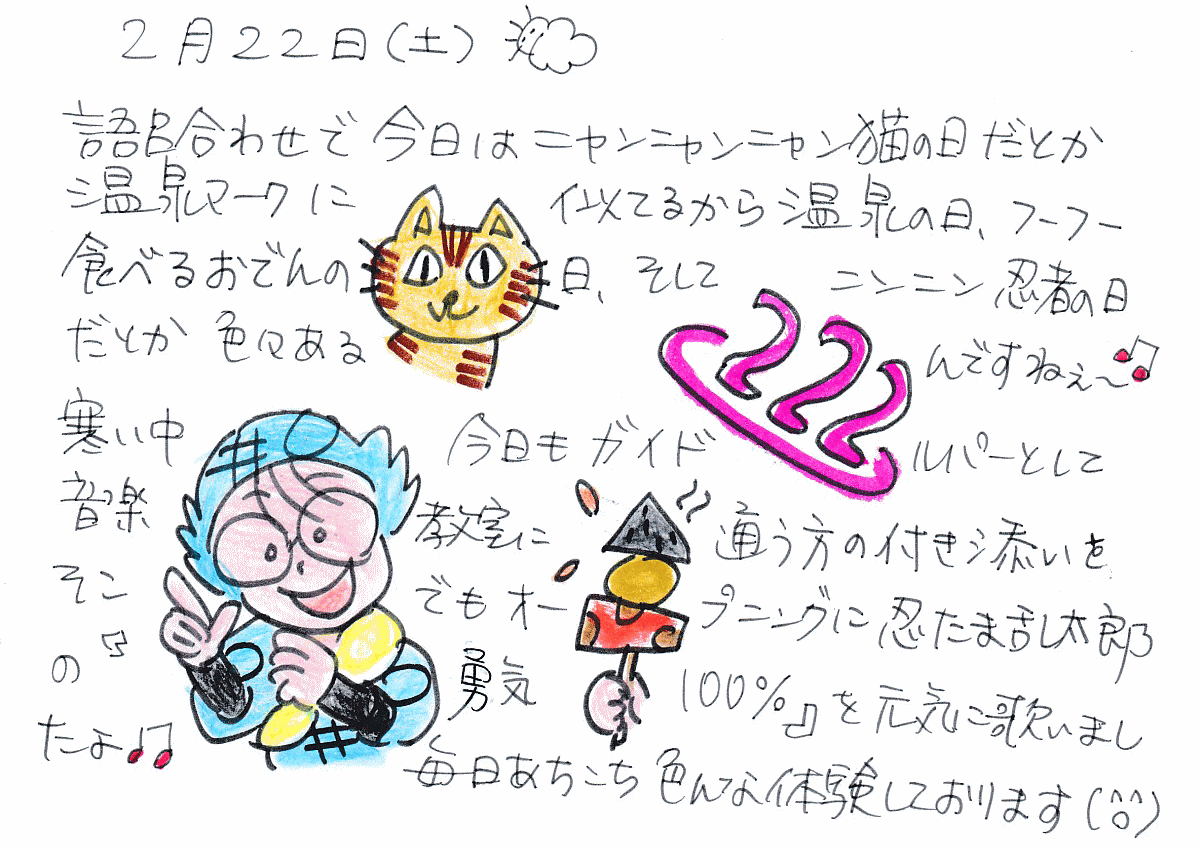 2月22日(土)
語呂合わせで今日はニャンニャンニャン猫の日だとか
温泉マークに似てるから温泉の日、フーフー
食べるおでんの日、そしてニンニン忍者の日
だとか色々あるんですねぇ〜♫
寒い中今日もガイドルパーとして
音楽教室に通う方の付き添いを
そこでもオープニングに忍たま乱太郎
の『勇気100%』を元気に歌いまし
たよ♫
毎日あちこち色んな体験しております(^o^)